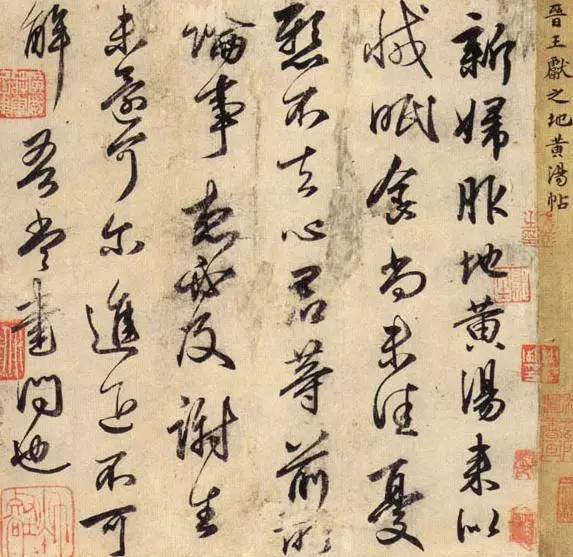 晉王獻之地黃湯帖
新婦服地黃湯来似
減眠食尚未佳憂
懸不去心君等前所
論事想必及謝生
未還可尔進退不可
解吾當書問也